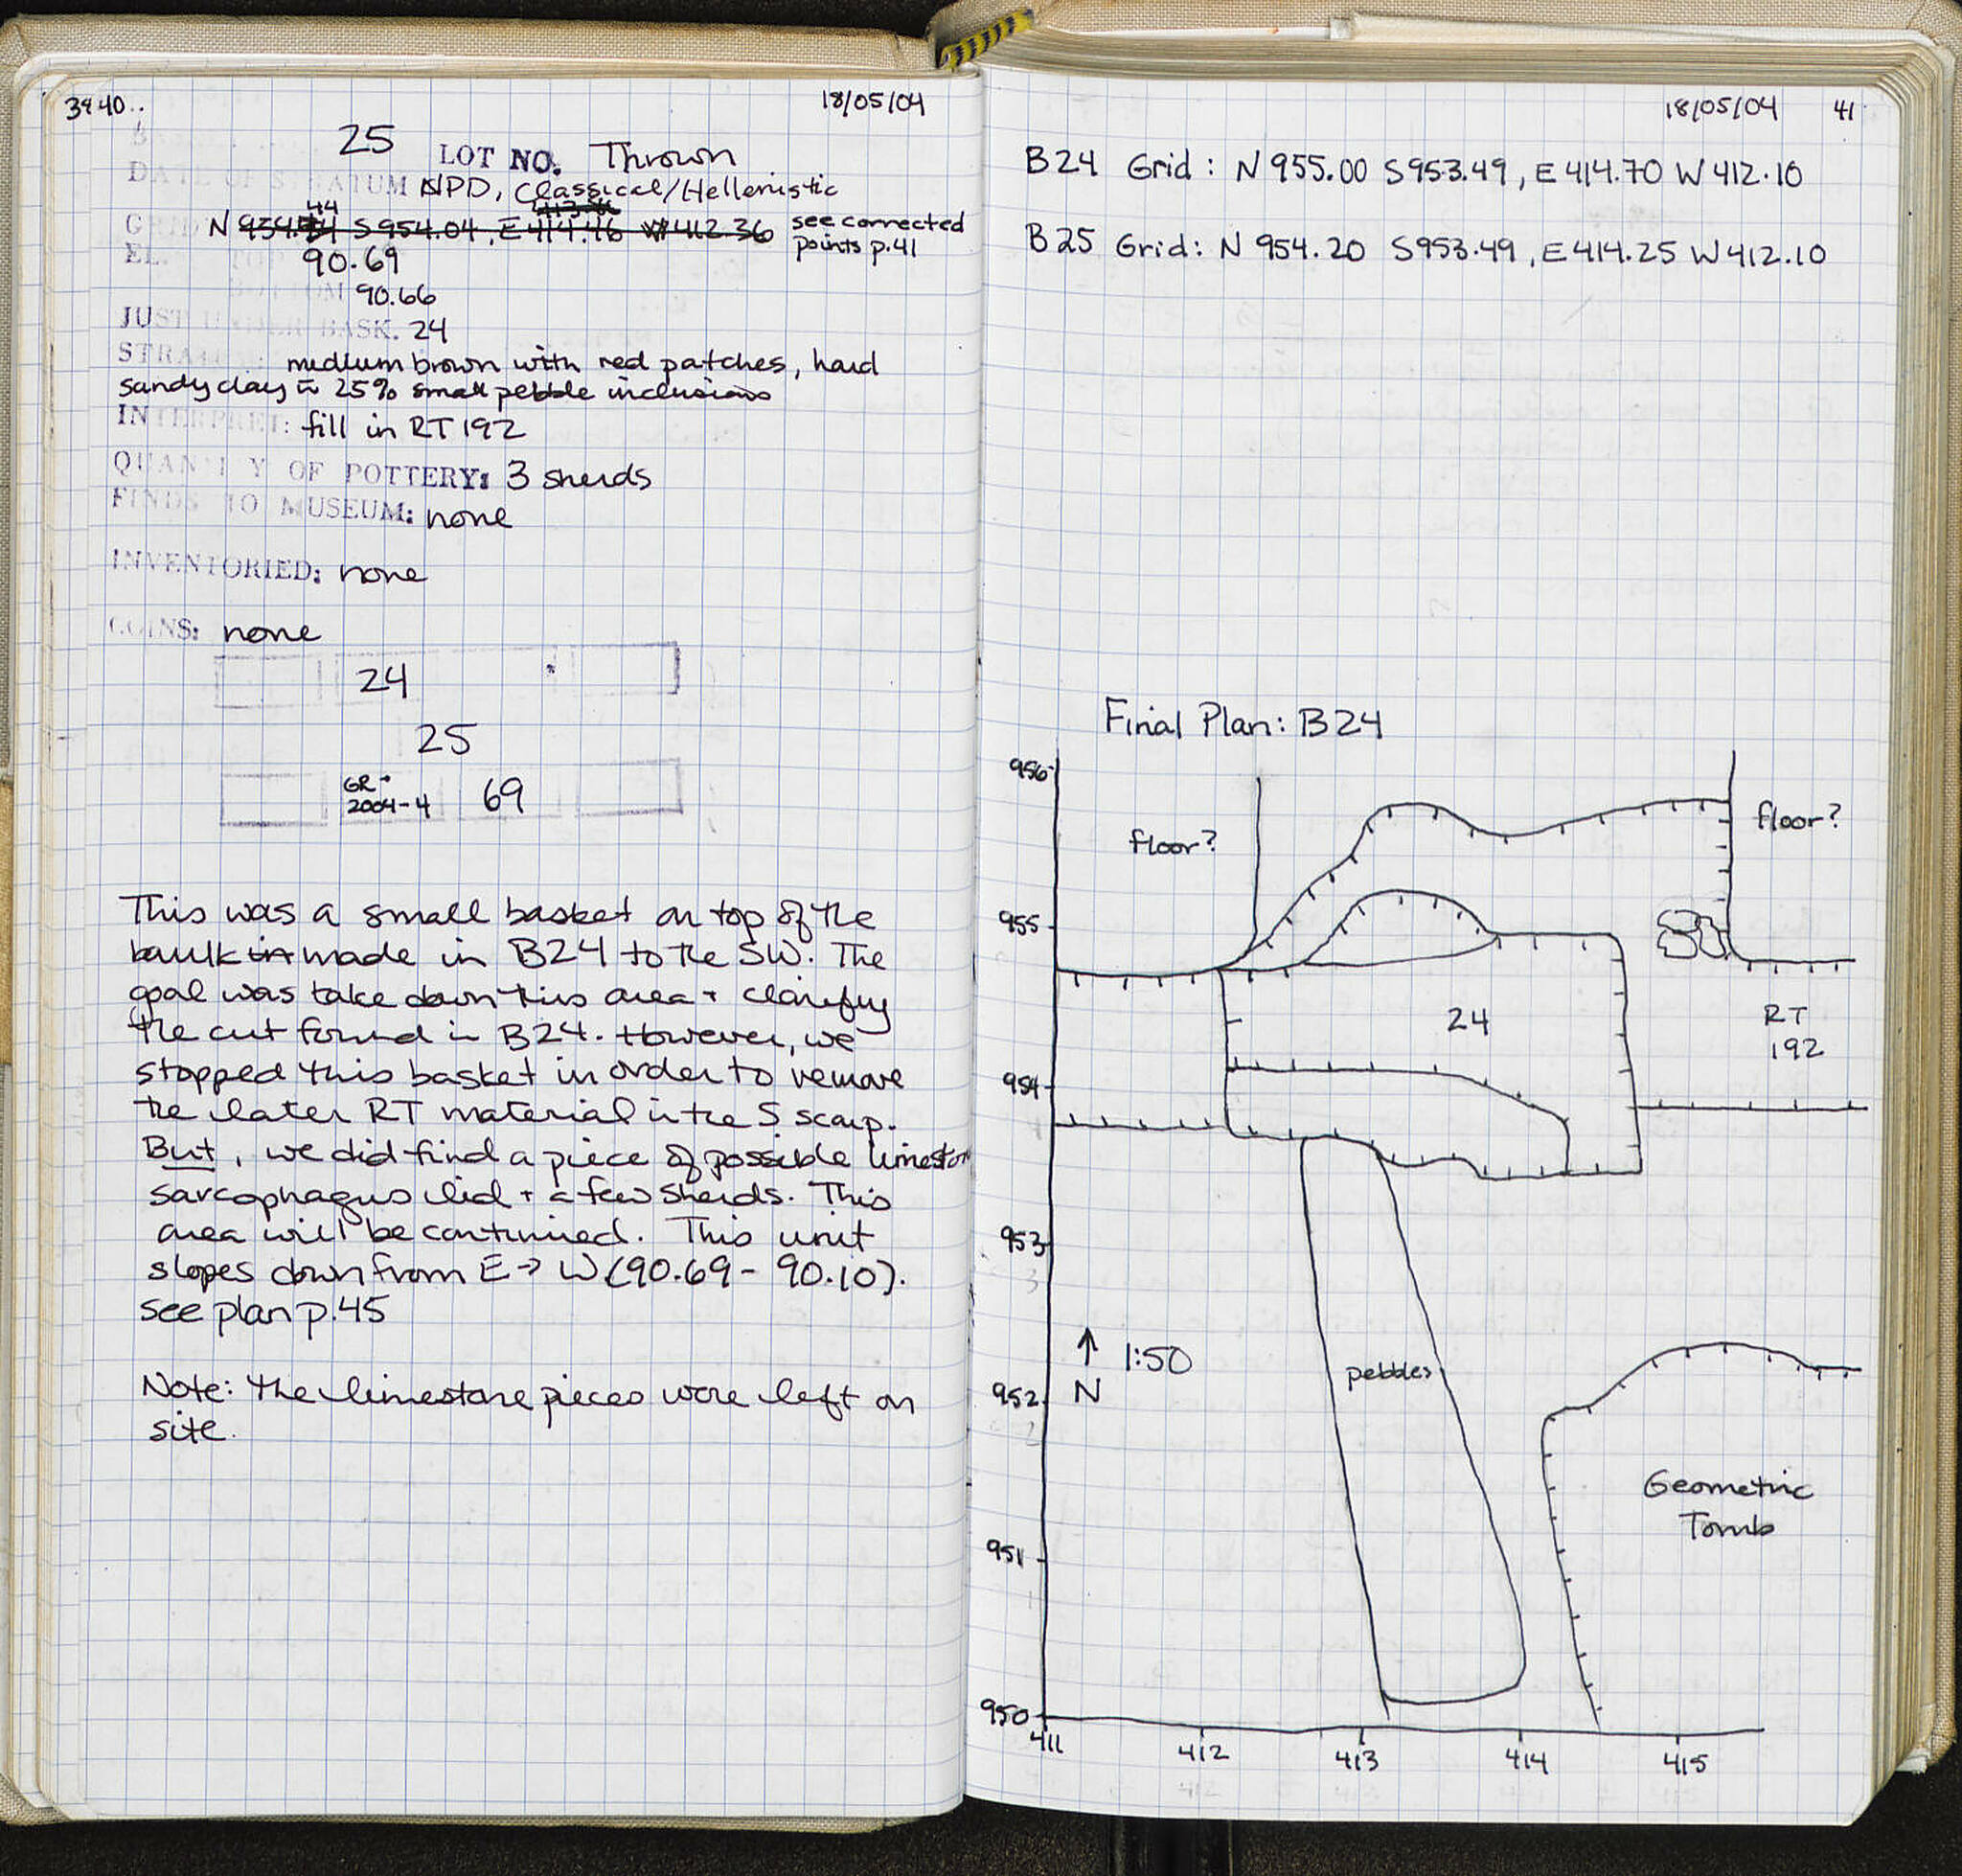 39 40
18/05/04
25 LOT NO. Thrown
DATE OF STRATUM NPD, Classical/Hellenistic
44
GRID N 954.44 S 954.04, E 414.46 W 412.36 see corrected
points p.41
EL. TOP 90.69
BOTTOM 90.66
JUST UNDER BASK. 24
STRATUM: medium brown with red patches, hard
sandy clay c̄ 25% small pebble inclusions
INTERPRET: fill in RT 192
QUANTITY OF POTTERY: 3 sherds
FINDS TO MUSEUM: none
INVENTORIED: none
COINS: none
24
25
GR-
2004-4 69
This was a small basket on top of the
baulk made in B24 to the SW. The
goal was take down this area + clarify
the cut found in B24. However, we
stopped this basket in order to remove
the later RT material in the S scarp.
But, we did find a piece of possible limeston
sarcophagus lid + a few sherds. This
area will be continued. This unit
slopes down from E → W (90.69 - 90.10).
see plan p.45
Note: the limestone pieces were left on
site.
18/05/04 41
B24 Grid: N 955.00 S 953.49, E 414.70 W 412.10
B25 Grid: N 954.20 S 953.49, E 414.25 W 412.10
Final Plan: B24
956
floor?
floor?
955
24
RT
192
954
953
↑ 1:50
N
pebbles
952
Geometric
Tomb
951
950
411 412 413 414 415